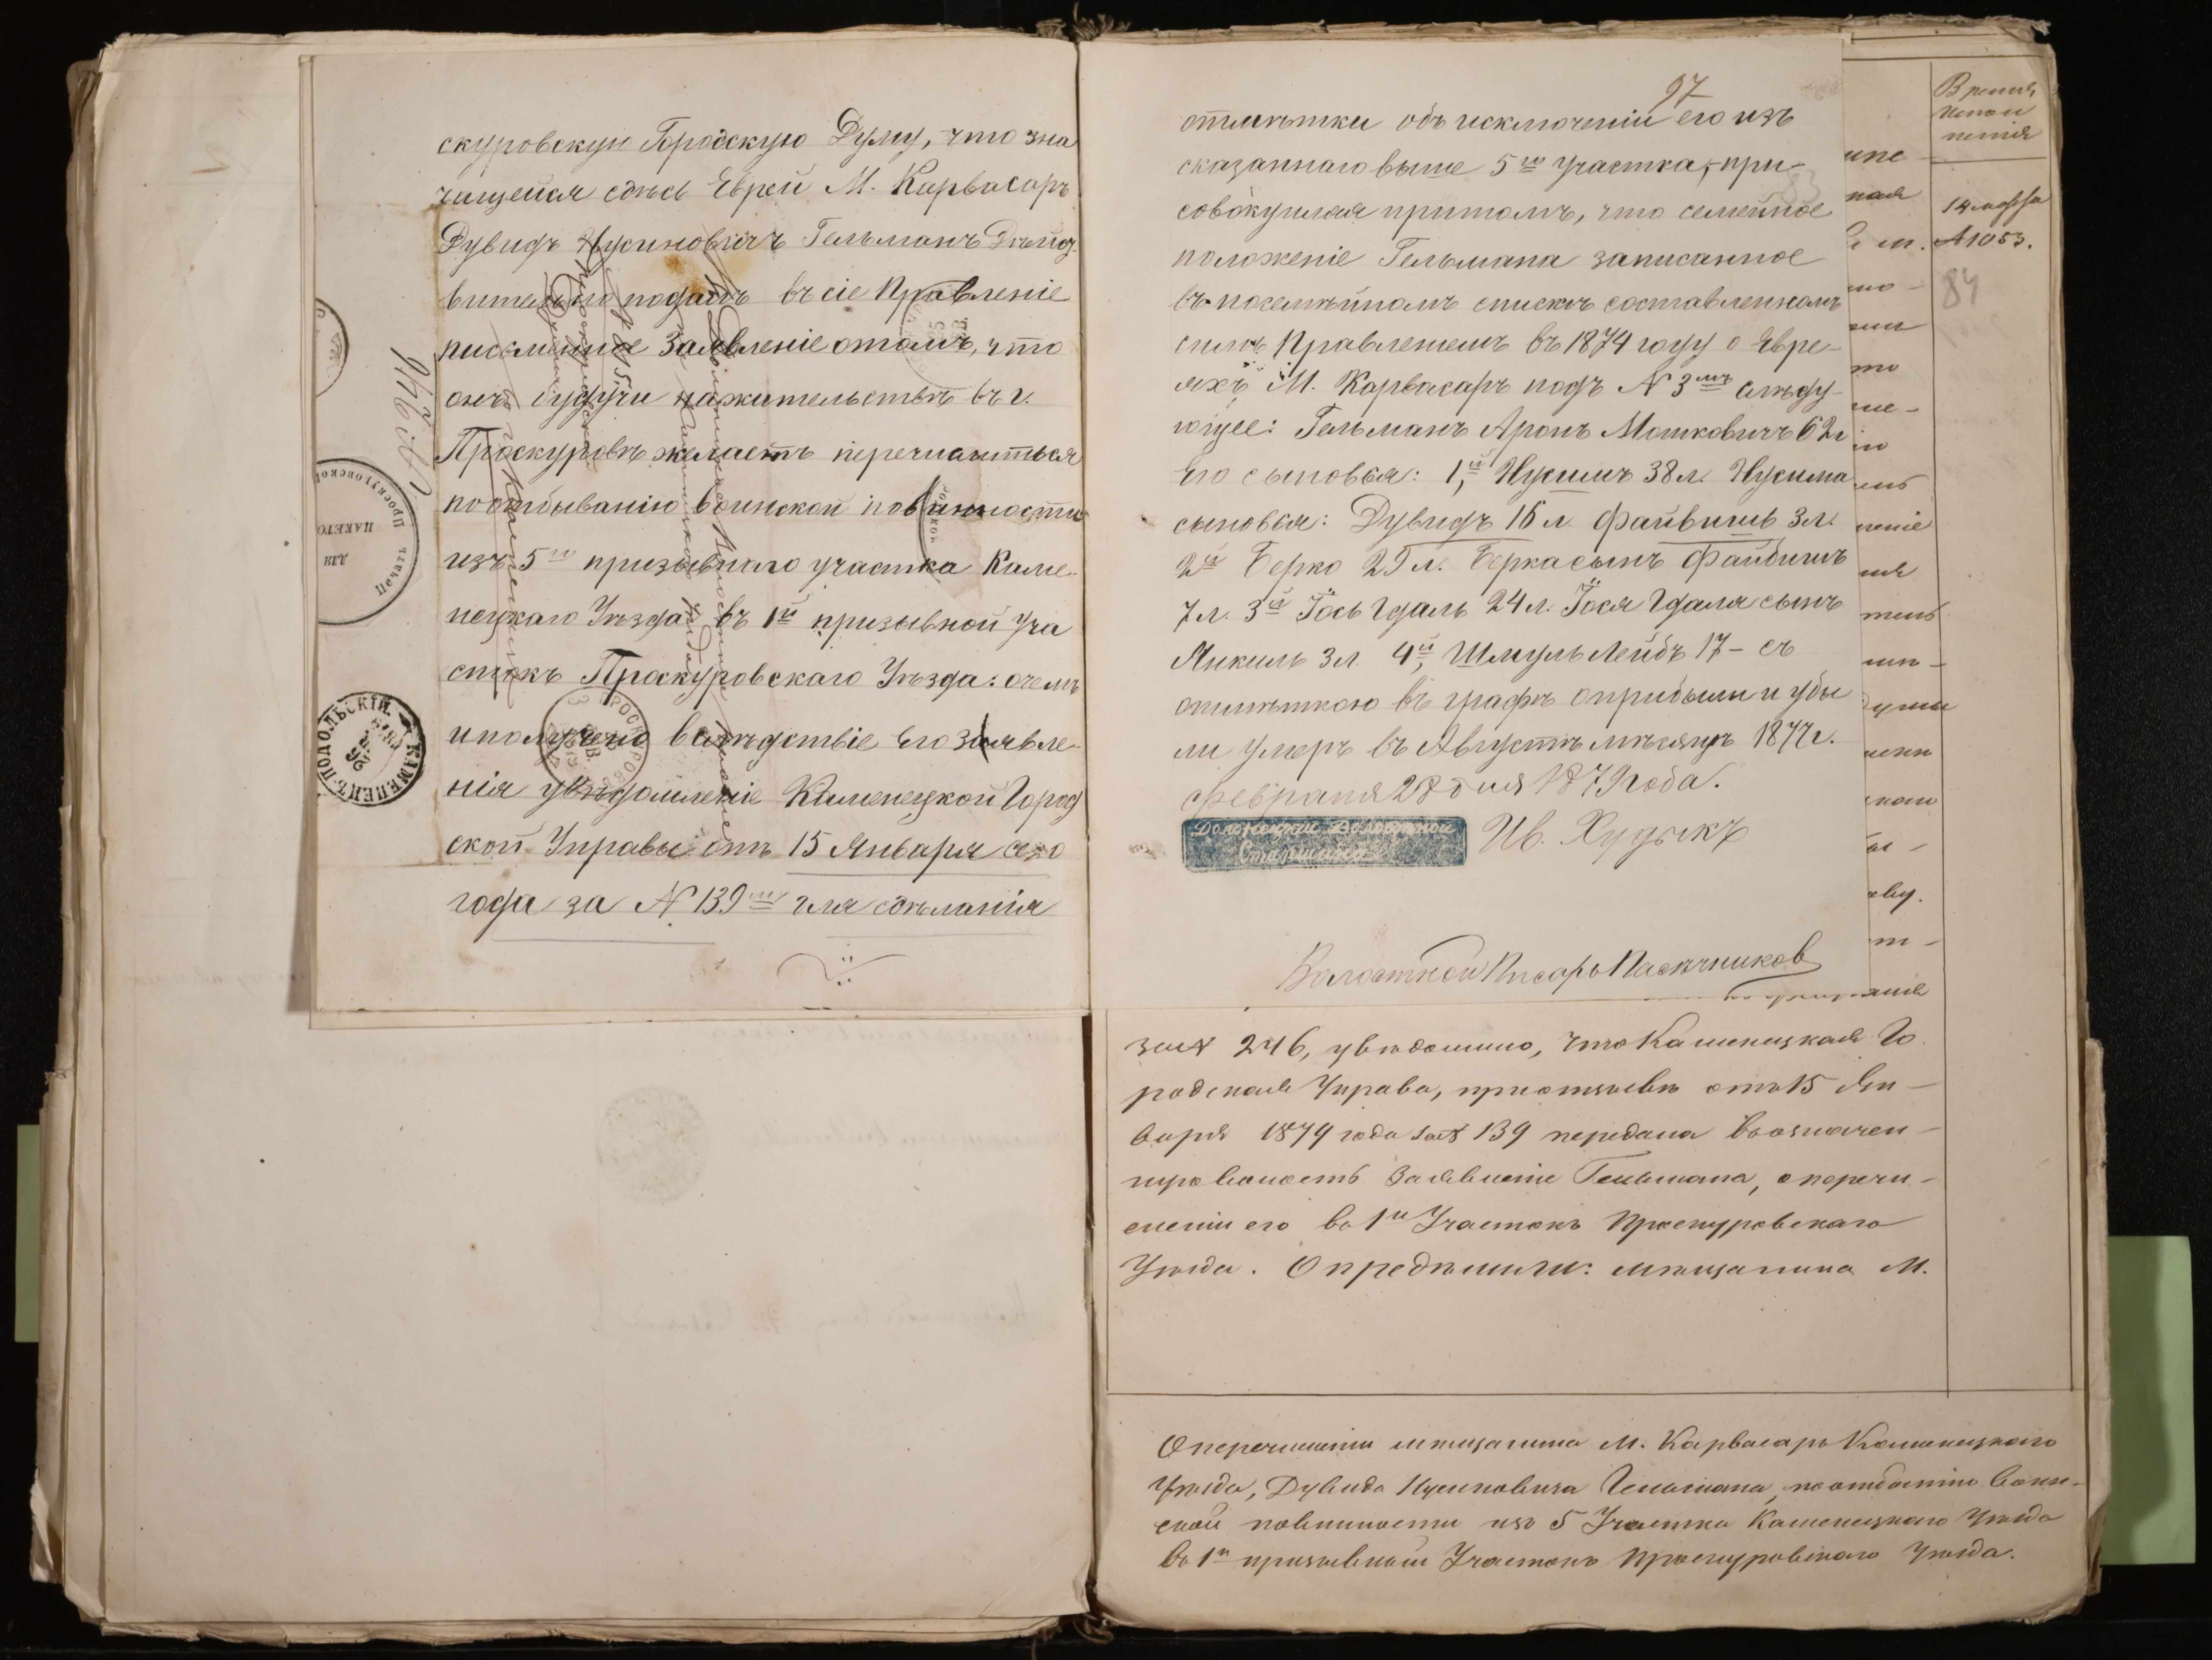 скуровскую Городскую Думу, что зна
чащейся сдѣсь Еврей М. Карвасаръ
Дувидъ Нусиновичъ Гельманъ Дѣйст
вительно подалъ въ сіе Правленіе
письменное Заявленіе отомъ, что
онъ будучи нажительствѣ въ г.
Проскуровѣ желаетъ перечислиться
поотбыванію воинской повинности
изъ 5го призывнаго участка Каме-
нецкаго Уѣзда въ 1й призывной Уча
стокъ Проскуровскаго Уѣзда: очемъ
иполучено вслѣдствіе Его заявле-
нія увѣдомленіе Каменецкой Город
ской Управы отъ 15 Января сего
года за N 139м для сдѣланія
№ 246
Печать Проскуровской
для
пакетов
КАМЕНЕЦЪ-ПОДОЛЬСКІЙ
97
отмѣтки объ исключеніи его изъ
сказаннаго выше 5го участка, при-
83
совокупляя притомъ, что семейное
положеніе Гельмана записанное
въ посемѣйномъ спискѣ составленномъ
симъ Правленіемъ въ 1874 году о Евре-
яхъ М. Карвасаръ подъ N 3мъ слѣду-
ющее: Гельманъ Аронъ Мошковичъ 62л
Его сыновья: 1й, Нусимъ 38 л. Нусима
сыновья: Дувидъ 16 л. Файвишъ 3 л.
2й Берко 29 л. Берка сынъ Файвишъ
7 л. 3й Іось Гдаль 24 л. Іося Гдаля сынъ
Янкиль 3 л. 4й, Шмуль Лейбъ 17 – съ
отмѣткою въ графѣ оприбыли и убы
ли умеръ въ Августѣ мѣсяцѣ 1877 г.
Февраля 28 дня 1879 года.
Должецкій Волостной
Старшина
Ив. Худыкъ
Волостной Писарь Пасѣчников
Время
испол
ненія
14 марта
N 1053.
84
за N 246, увѣдомило, что Каменецкая Го
родская Управа, приотзывѣ отъ 15 Ян-
варя 1879 года за N 139 передала въ означен-
ную волость Заявленіе Гельмана, о перечи-
сленіи его въ 1й Участокъ Проскуровскаго
Уѣзда. Опредѣлили: мѣщанина М.
О перечисленіи мѣщанина М. Карвасаръ Каменецкаго
Уѣзда, Дувида Нусиновича Гельмана, поотбытію воин-
ской повинности изъ 5 Участка Каменецкаго Уѣзда
въ 1й призывной Участокъ Проскуровскаго Уѣзда.